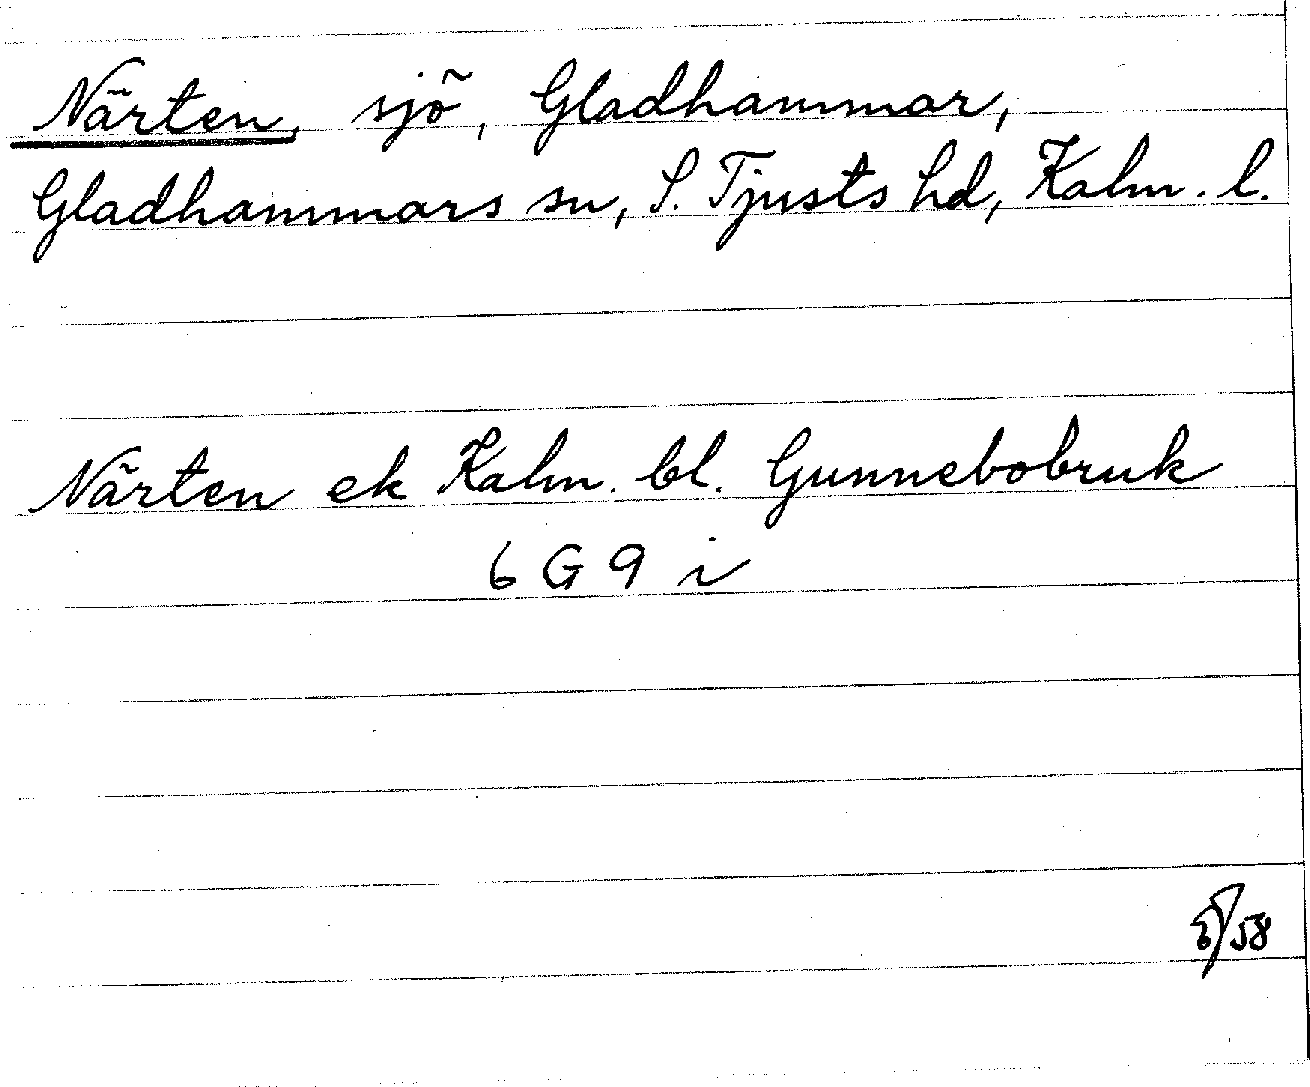 Närten, sjö, Gladhammar,
Gladhammars sn, S. Tjusts hd, Kalm. l.
Närten ek Kalm. bl. Gunnebobruk
6 G 9 i